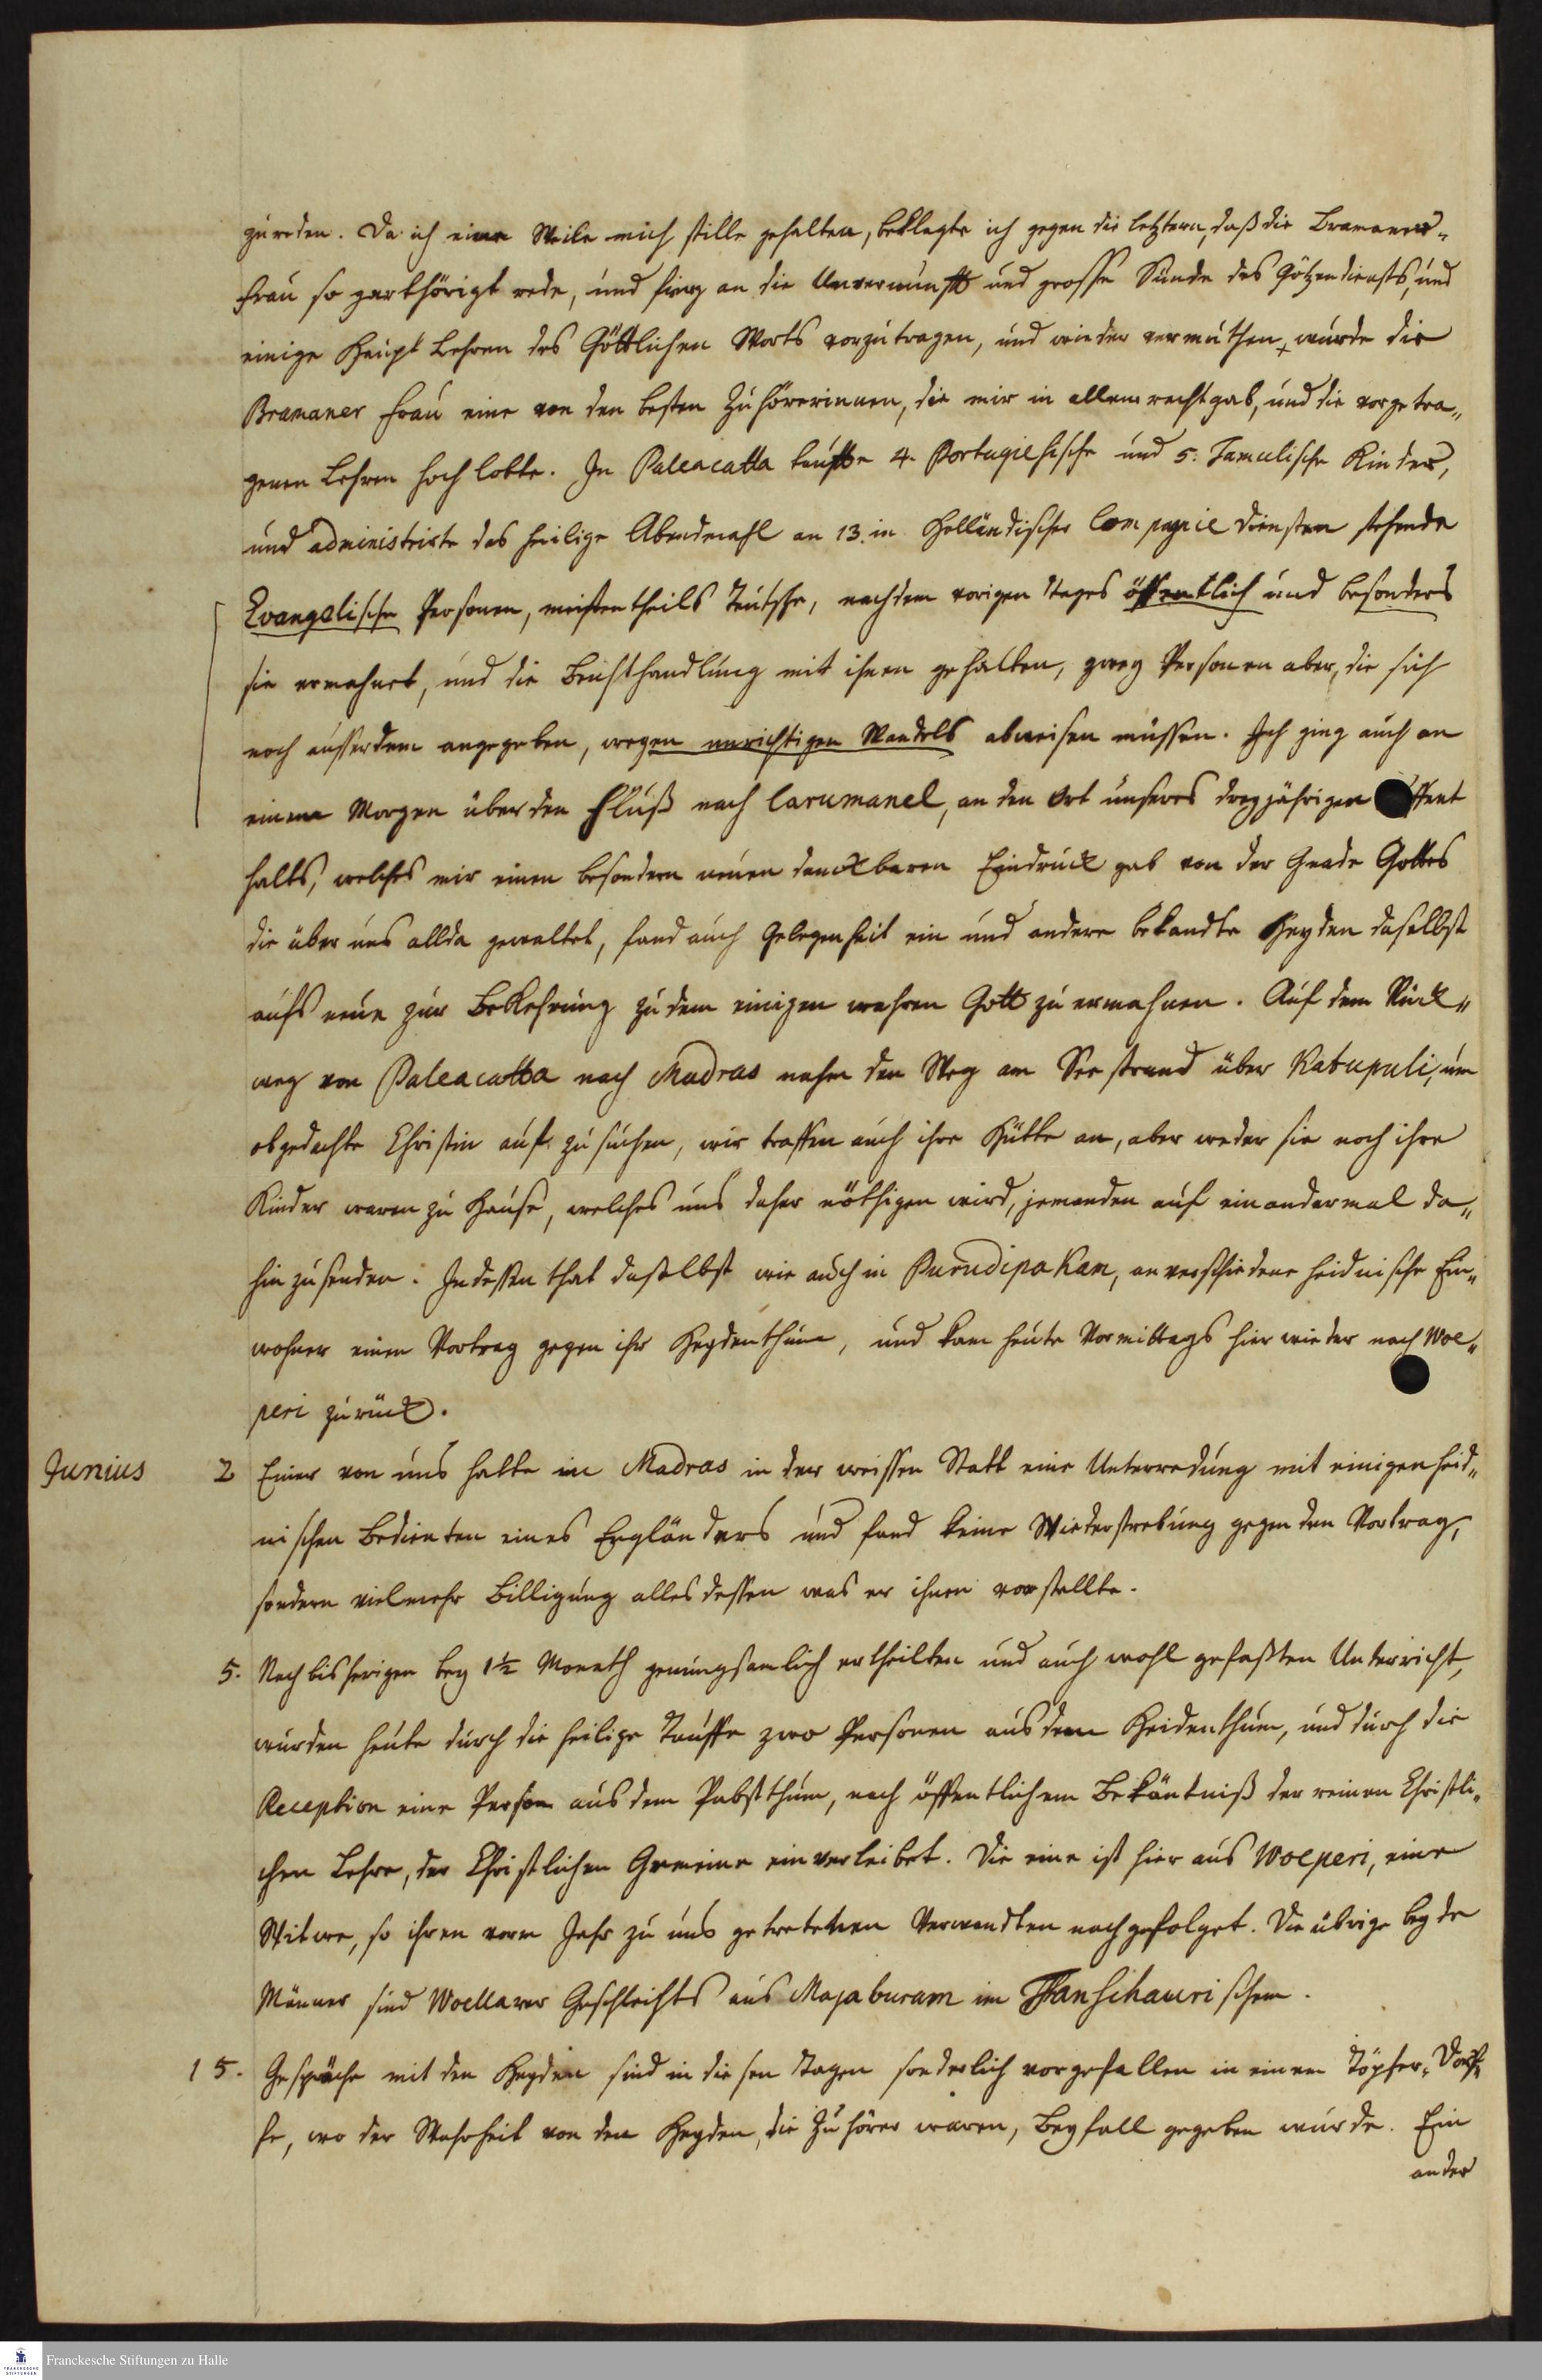 zureden. Da ich eine Weile mich stille gehalten, beklagte ich gegen die letztern, daß die Bramaner„
Frau so gar thörigt rede, und fing an die Unvernunfft und grosse Sünde des Götzendiensts, und
einige Haupt Lehren des Göttlichen Worts vorzutragen, und wieder vermuthen, wurde die
Bramaner Frau eine von den besten Zuhörerinnen, die mir in allem recht gab, und die vorgetra„
genen Lehren hoch lobte. In Paleacatta tauffte 4. Portugiesische und 5. Tamulische Kinder,
und administrirte das heilige Abendmahl an 13. in Holländischer Compagnie diensten stehende
Evangelische Personen, meistentheils Teutsche, nachdem vorigen Tages öffentlich und besonders
sie ermahnet, und die Beichthandlung mit ihnen gehalten, zwey Personen aber, die sich
noch ausserdem angegeben, wegen unrichtigen Wandels abweisen müssen. Ich ging auch an
einem Morgen über den Fluß nach Carumanel, an den Ort unseres dreyjährigen uffent
halts, welches mir einen besondern neuen danckbaren Eindruck gab von der Gnade Gottes
die über uns allda gewaltet, fand auch Gelegenheit ein und andere bekandte Heyden daselbst
aufs neue zur Bekehrung zu dem einigen wahren Gott zu ermahnen. Auf dem Rück„
weg von Paleacatta nach Madras nahm den Weg am See strand über Katupuli, um
obgedachte Christin auf zu suchen, wir traffen auch ihre Hütte an, aber weder sie noch ihre
Kinder waren zu Hause, welches uns daher nöthigen wird, jemanden auf ein andermal da„
hin zu senden. Indessen that daselbst wie auch in Purudipakam, an verschiedene heidnische Ein„
wohner einen Vortrag gegen ihr Heydenthum, und kam heute Vormittags hier wieder nach Woe„
peri zurück.
Junius 2 Einer von uns hatte in Madras in der weissen Statt eine Unterredung mit einigen heid„
nischen Bedienten eines Engländers und fand keine Wiederstrebung gegen den Vortrag,
sondern vielmehr Billigung alles dessen was er ihnen vorstellte.
5. Nach bisherigen bey 1½ Monath genungsamlich ertheilten und auch wohl gefaßten Unterricht,
wurden heute durch die heilige Tauffe zwo Personen aus dem Heidenthum, und durch die
Reception eine Person aus dem Pabstthum, nach öffentlichem Bekäntniß der reinen Christli„
chen Lehre, der Christlichen Gemeine einverleibet. Die eine ist hier aus Woeperi, eine
Witwe, so ihren vorm Jahr zu uns getretenen Verwandten nachgefolget. Die übrige beyde
Männer sind Woellarer Geschlechts aus Majaburam im Tanschaurischem.
15. Gespräche mit den Heyden sind in diesen Tagen sonderlich vorgefallen in einem Töpfer-Dorf„
fe, wo der Wahrheit von den Heyden, die Zuhörer waren, Beyfall gegeben wurde. Ein
ander
Franckesche Stiftungen zu Halle